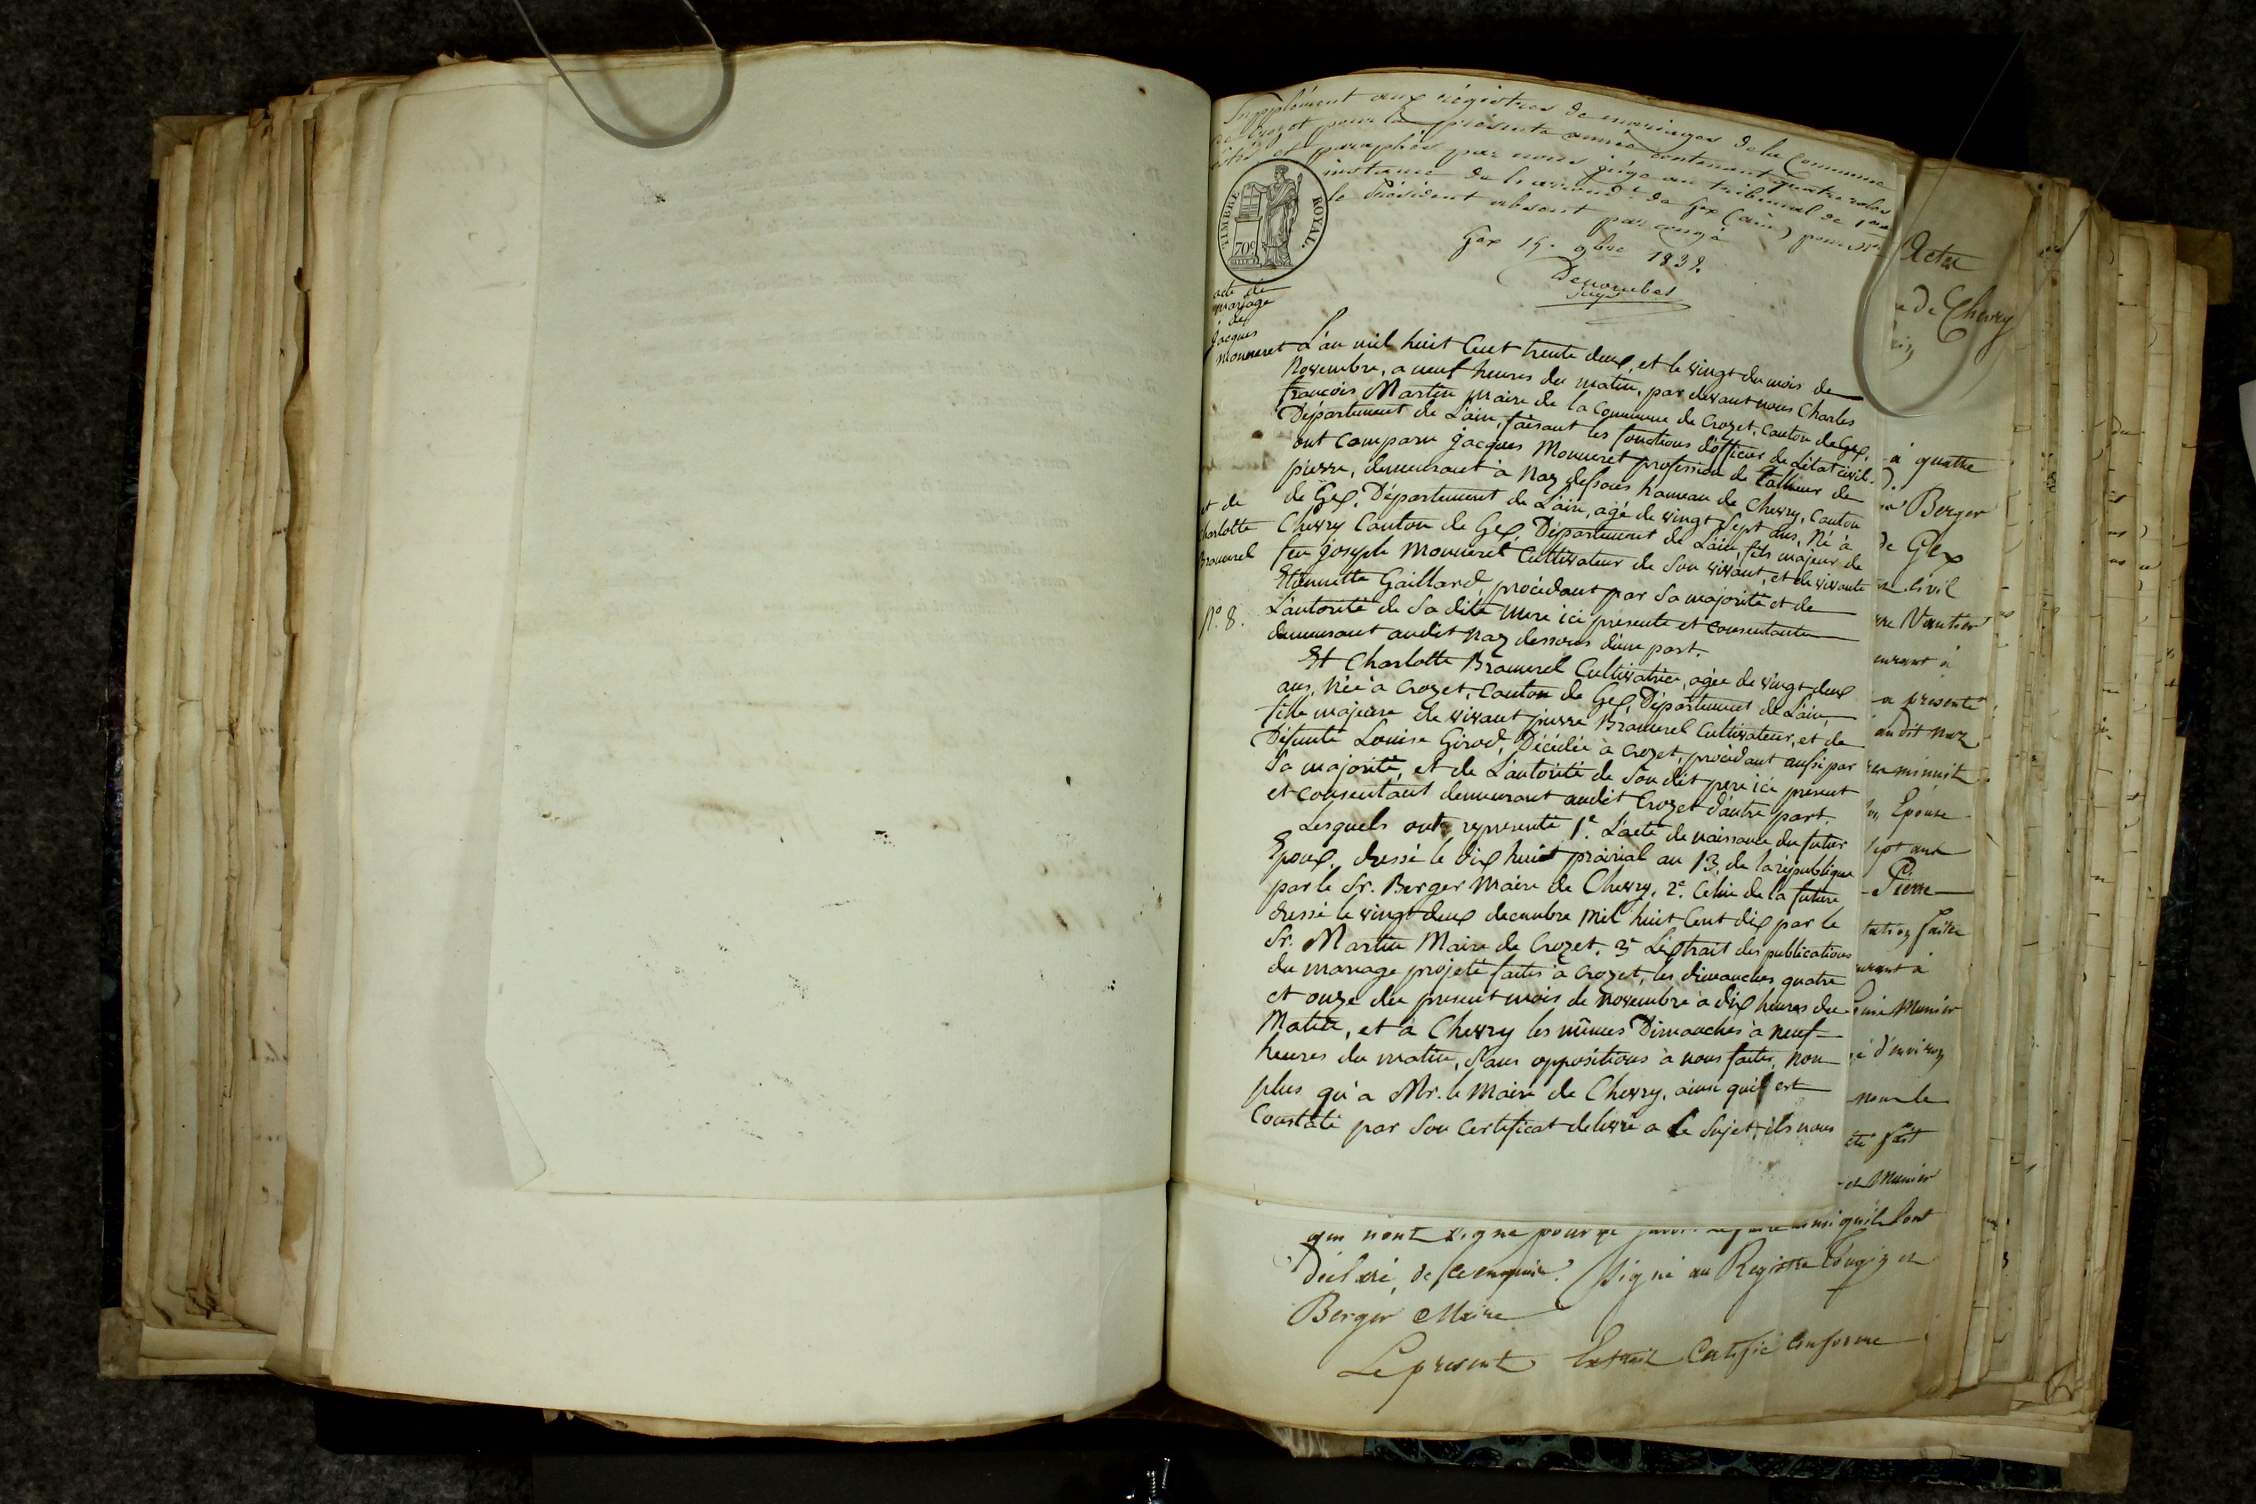 Supplément aux régistres de mariages de la Commune
de Crozet pour la présente année contenant quatre roles
cotés et paraphés par nous juge au tribunal de 1ère
instance de l'arrond.t de Gex (ain) pour Mr.
le Président absent par congé
Gex 15. 9bre 1832.
Juge
TIMBRE ROYAL.
70c
acte de
mariage
de
Jacques
Monneret
L'an mil huit Cent trente deux, et le vingt du mois de
Novembre, a neuf heures du matin, par devant nous Charles
françois Martin Maire de la Commune de Crozet, Canton de Gex,
Département de L'ain, faisant les fonctions d'officier de L'état civil.
ont comparu jacques Monneret profession de tailleur de
pierre, demeurant à Naz dessous hameau de Chevry, Canton
de Gex, Département de L'ain, agé de vingt sept ans, Né à
Chevry Canton de Gex, Département de L'ain, fils majeur de
feu joseph Monneret Cultivateur de Son vivant, et de vivante
Etiennette Gaillard, procédant par Sa majorité et de
L'autorité de Sa dite Mere ici présente et Consentante
demeurant audit Naz dessous d'une part.
et de
Charlotte
Brounel
N.o 8.
Et Charlotte Brounel Cultivatrice, agée de vingt deux
ans, Née à Crozet, Canton de Gex, Département de L'ain,
fille majeure de vivant pierre Brounel Cultivateur, et de
Défunte Louise Girod, Décédée à Crozet, procédant aussi par
Sa majorité, et de L'autorité de Son dit pere ici présent
et Consentant demeurant audit Crozet d'autre part.
Lesquels ont représenté 1.e L'acte de naissance du futur
Epoux, dressé le dix huit prairial an 13, de la république
par le Sr. Berger Maire de Chevry, 2.e Celui de la future
dressé le vingt deux decembre Mil huit Cent dix par le
Sr. Martin Maire de Crozet. 3e L'extrait des publications
du mariage projeté faites à Crozet, les dimanches quatre
et onze du present mois de Novembre à dix heures du
Matin, et à Chevry les mêmes Dimanches à neuf
heures du matin, Sans oppositions à nous faites, non
plus qu'a Mr. le Maire de Chevry, ainsi qu'il est
Constaté par Son Certificat delivré a ce Sujet; ils nous
Actes
e de Chevry
à quatre
Berger
de Gex
Civil
Vautier
eurant à
a presenté
au dit naz
minuit
Epouse
sept ans
Pierre
tation faite
urant à
Munier
é d'environ
nous le
été fait
et Munier
qui n'ont signé pour ne savoir ainsi quils l'ont
Déclaré, de ce enquis. Signé au Registre et
Berger Maire
Le present Extrait Certifié Conforme